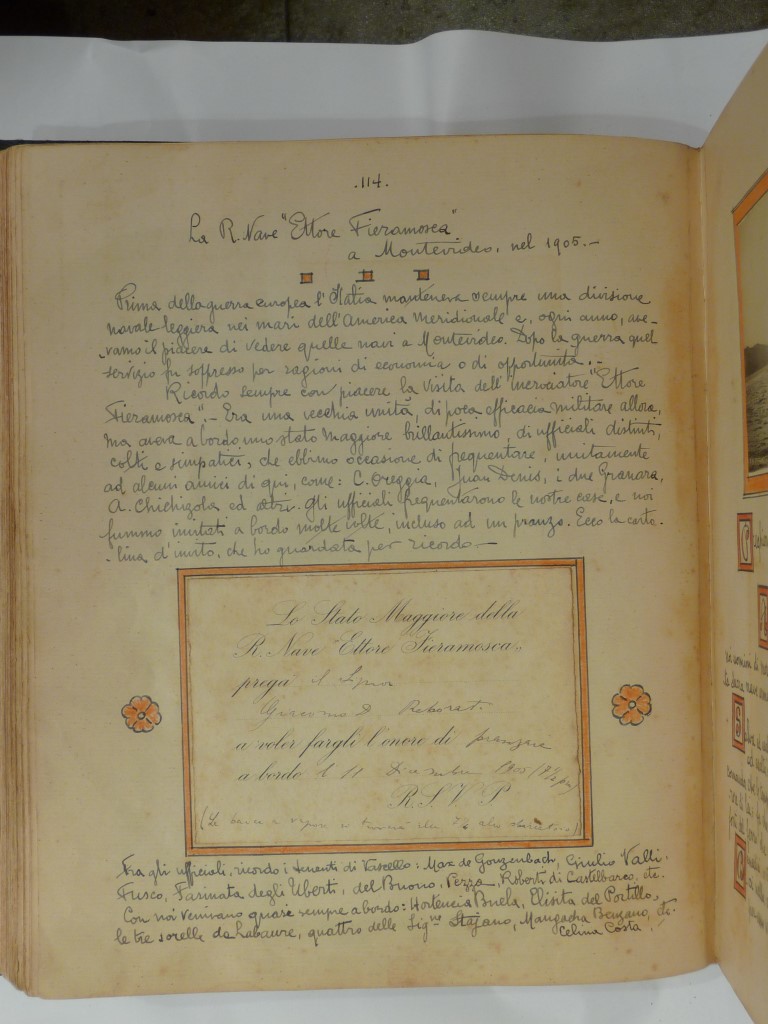 .114.
La R. Nave "Ettore Fieramosca"
a Montevideo, nel 1905.—
Prima della guerra europea l'Italia manteneva sempre una divisione
navale leggiera nei mari dell'America Meridionale e, ogni anno, ave-
vamo il piacere di vedere quelle navi a Montevideo. Dopo la guerra quel
servizio fu soppresso per ragioni di economia o di opportunità.—
Ricordo sempre con piacere la visita dell'incrociatore "Ettore
Fieramosca".— Era una vecchia unità, di poca efficacia militare allora,
ma aveva a bordo uno stato maggiore brillantissimo, di ufficiali distinti,
colti e simpatici, che ebbimo occasione di frequentare, unitamente
ad alcuni amici di qui, come: C. Oreggia, Juan Denis, i due Granara,
A. Chichizola ed altri. Gli ufficiali frequentarono le nostre case, e noi
fummo invitati a bordo molte volte, incluso ad un pranzo. Ecco la carto-
lina d'invito, che ho guardata per ricordo.—
Lo Stato Maggiore della
R. Nave "Ettore Fieramosca"
prega il Signor
Giacomo D. Reborati
a voler fargli l'onore di pranzare
a bordo il 11 Dicembre 1905
R. S. V. P
(La barca a vapore si troverà alle
Fra gli ufficiali, ricordo i tenenti di Vascello: Max de Gonzenbach, Giulio Valli,
Fusco, Farinata degli Uberti, del Buono, Pezza, Roberti di Castelbarco, etc.
Con noi venivano quasi sempre a bordo: Hortencia Buela, Elisita del Portillo,
le tre sorelle de Labaure, quattro delle Sig.ne Stefano, Mangacha Benzano, etc.
Celina Costa.